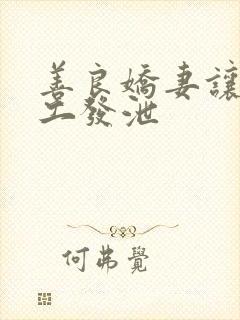 善良嬌妻讓
工發泄
何弗覺